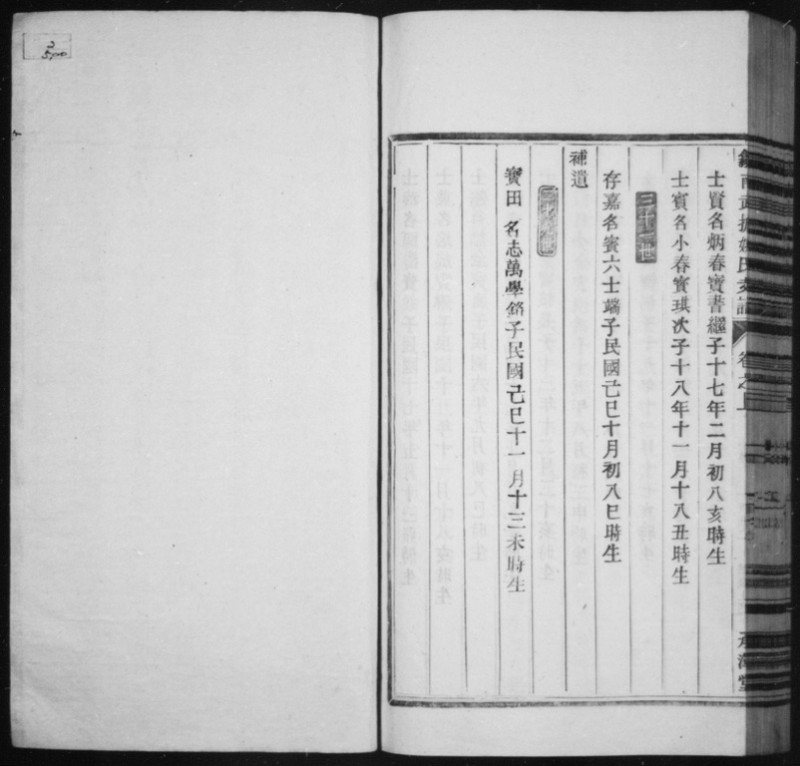 士賢名炳春寶書繼子十七年二月初八亥時生
士賓名小春實琪次子十八年十一月十八丑時生
三十一世
存嘉名賓六士端子民國己巳十月初八巳時生
補遺
寶田 名志萬學銘子民國己巳十一月十三未時生
卷之上